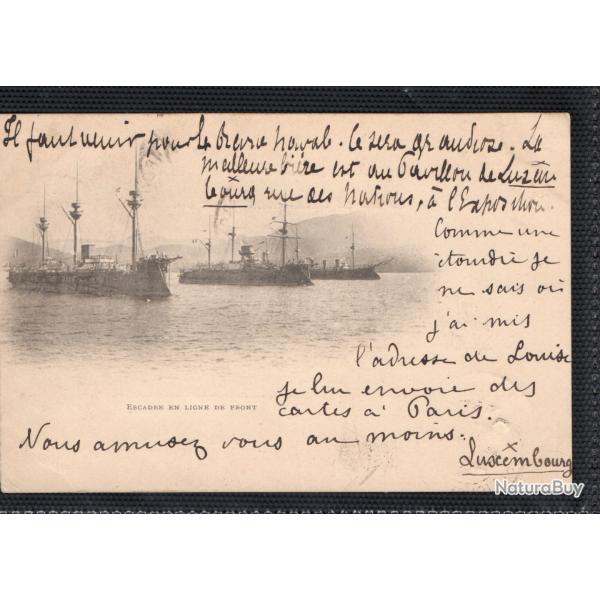 Il faut venir pour la Revue navale. Ce sera grandiose. La
meilleure bière est au Pavillon de Luxem
bourg rue des Nations, à l'Exposition.
Comme une
étourdie je
ne sais où
j'ai mis
l'adresse de Louise
je lui envoie des
cartes à Paris.
ESCADRE EN LIGNE DE FRONT
Nous amusez vous au moins.
Luxembourg
NaturaBuy